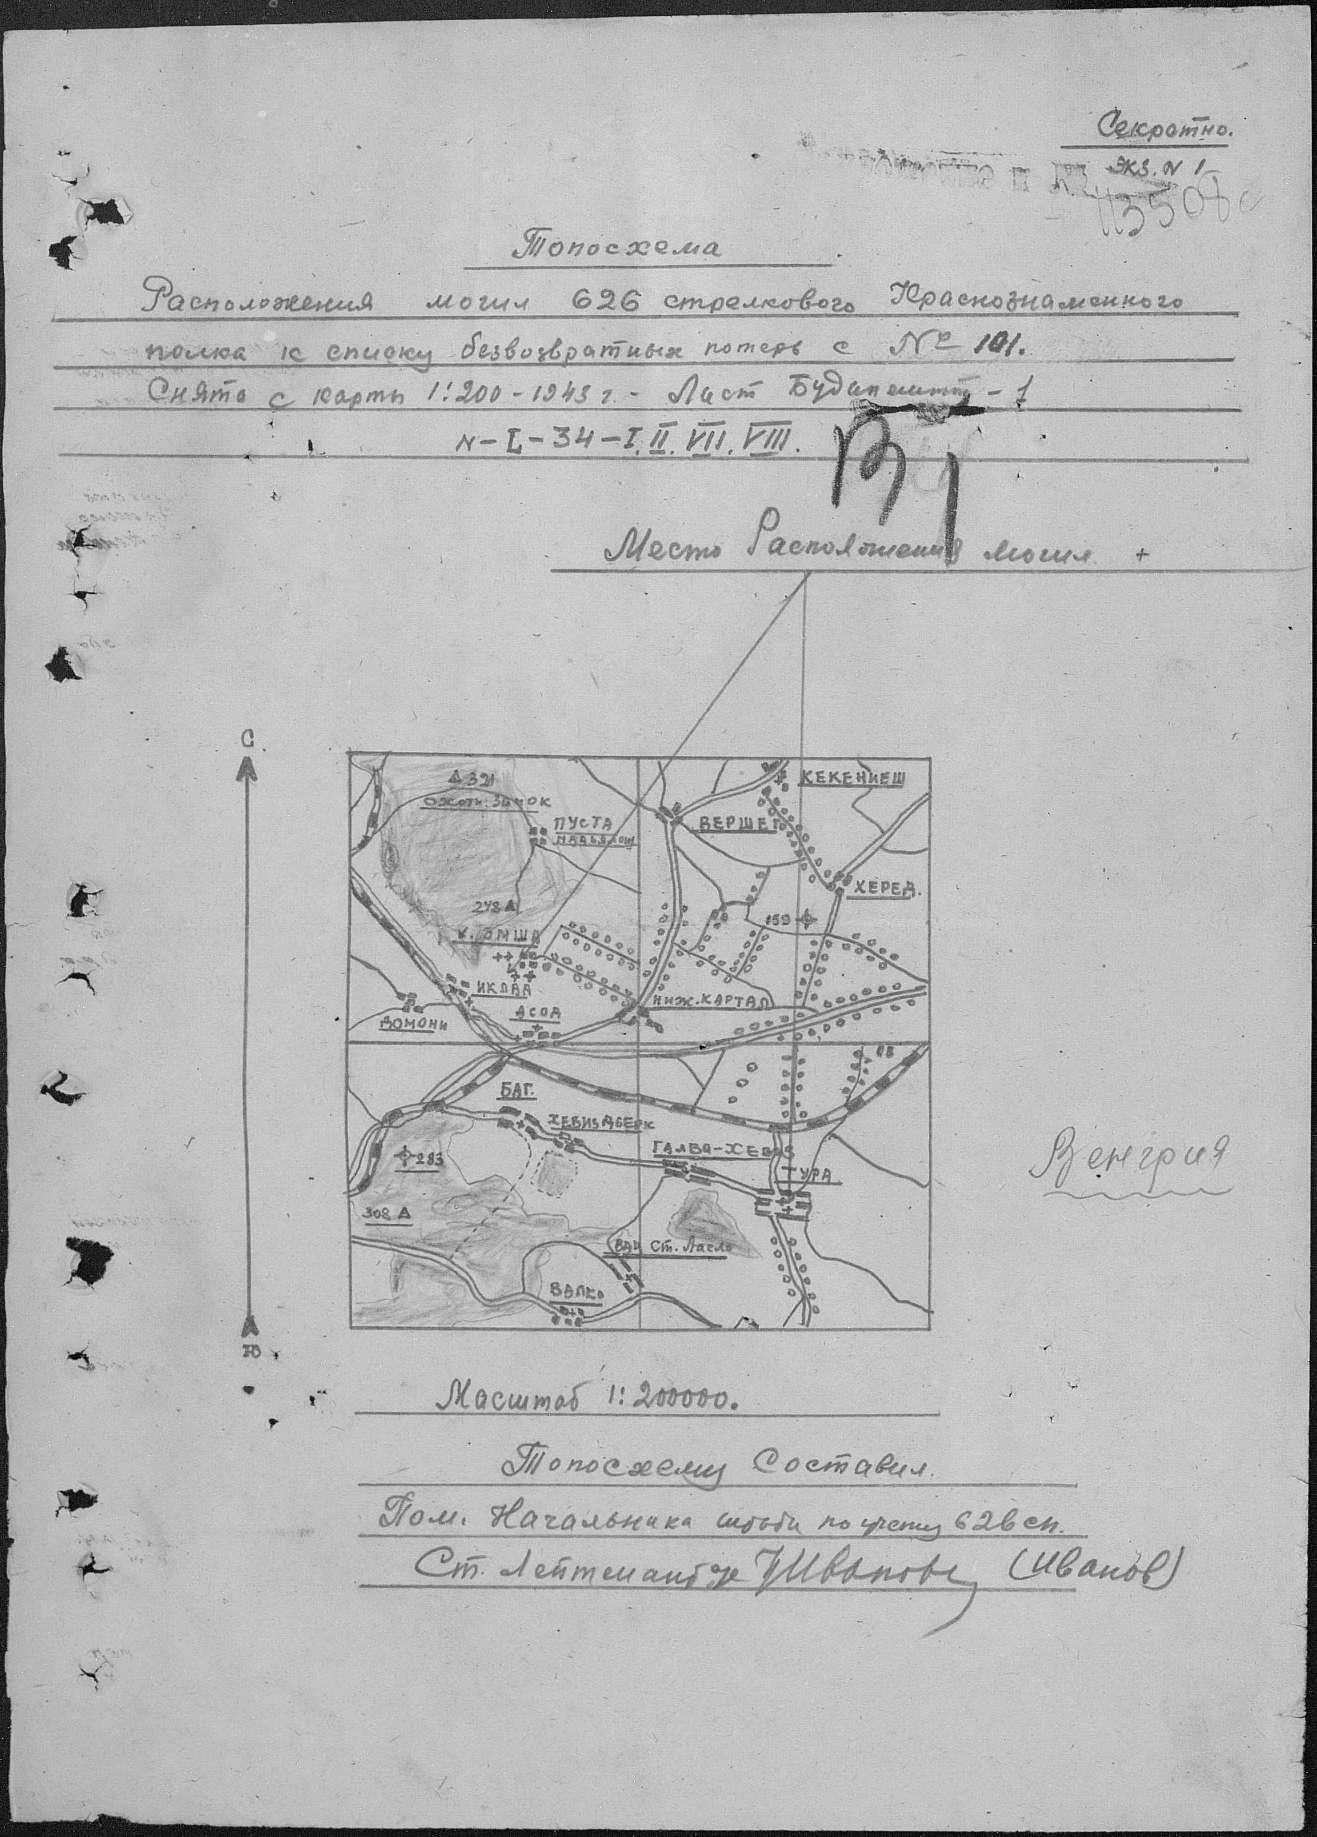 Секретно.
Экз. N 1
113508с
Топосхема
Расположения могил 626 стрелкового Краснознаменного
полка к списку безвозвратных потерь с № 101.
Снято с карты 1:200 - 1943 г. - Лист Будапешт - 1
N-L-34-I. II. VII. VIII.
Место Расположения могил +
С
Δ 321
КЕКЕНИЕШ
ПУСТА
ВЕРШЕГ
ХЕРЕД.
278 Δ
159
К. ЭМША
ИКЛАД
НИЖ. КАРТАЛ
АСОД
ДОМОНИ
118
БАГ.
ХЕВИЗДЬЕРК
283
УРА
308 Δ
ВАЦ Ст. Ласло
ВАЛКО
Венгрия
Ю
Масштаб 1:200000.
Топосхему Составил.
Пом. Начальника штаба по учету 626 сп.
Ст. Лейтенант Иванов (Иванов)